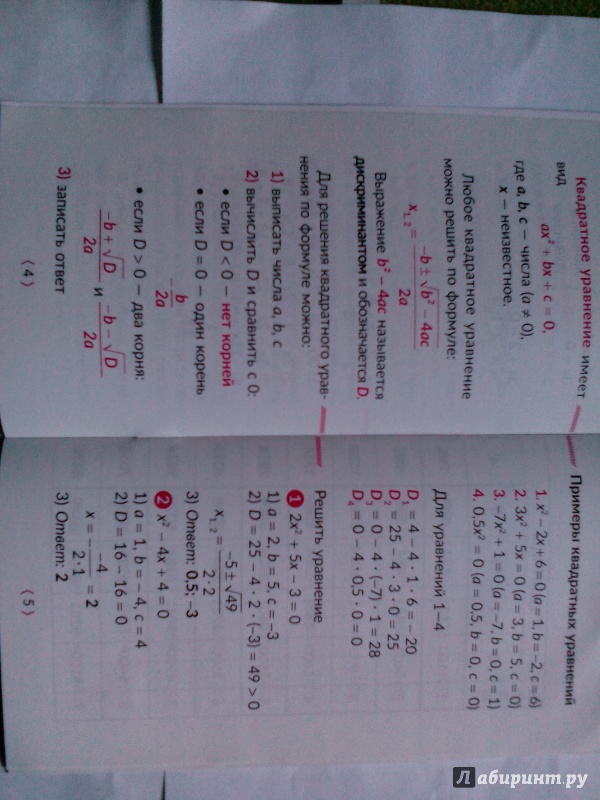 Квадратное уравнение имеет
вид
ax² + bx + c = 0,
где a, b, c – числа (a ≠ 0),
x – неизвестное.
Любое квадратное уравнение
можно решить по формуле:
x₁, ₂ = (-b ± √(b² – 4ac)) / 2a
Выражение b² – 4ac называется
дискриминантом и обозначается D.
Для решения квадратного урав-
нения по формуле можно:
1) выписать числа a, b, c
2) вычислить D и сравнить с 0:
• если D < 0 – нет корней
• если D = 0 – один корень
-b / 2a
• если D > 0 – два корня:
(-b + √D) / 2a и (-b – √D) / 2a
3) записать ответ
(4)
Примеры квадратных уравнений
1. x² – 2x + 6 = 0 (a = 1, b = –2, c = 6)
2. 3x² + 5x = 0 (a = 3, b = 5, c = 0)
3. –7x² + 1 = 0 (a = –7, b = 0, c = 1)
4. 0,5x² = 0 (a = 0,5, b = 0, c = 0)
Для уравнений 1–4
D₁ = 4 – 4 · 1 · 6 = – 20
D₂ = 25 – 4 · 3 · 0 = 25
D₃ = 0 – 4 · (–7) · 1 = 28
D₄ = 0 – 4 · 0,5 · 0 = 0
Решить уравнение
1 2x² + 5x – 3 = 0
1) a = 2, b = 5, c = –3
2) D = 25 – 4 · 2 · (–3) = 49 > 0
x₁, ₂ = (-5 ± √49) / (2 · 2)
3) Ответ: 0,5; –3
2 x² – 4x + 4 = 0
1) a = 1, b = – 4, c = 4
2) D = 16 – 16 = 0
x = – (–4) / (2 · 1) = 2
3) Ответ: 2
(5)
Лабиринт.ру